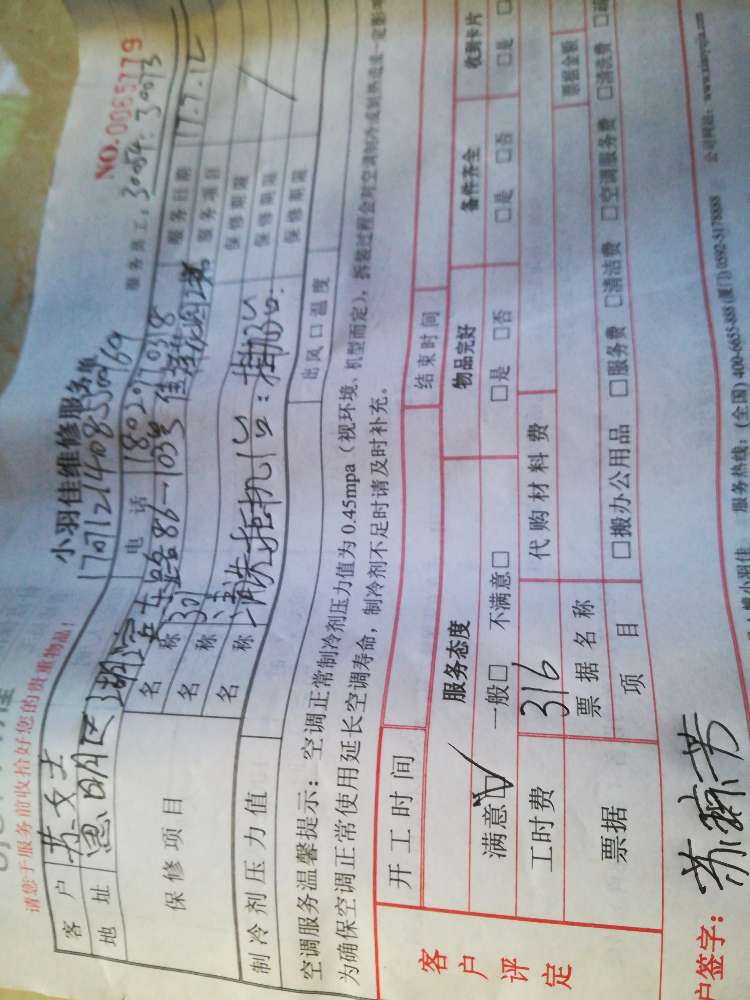 请您于服务前收拾好您的贵重物品!
小羽佳维修服务单
NO.0065779
服务员工:30054. 30073
客户 苏女士 电话
服务日期 17.7.12
地址 思明区湖滨东路86-103号
保修项目 名称 服务项目
名称 保修期限
名称 清洗柜机1台: 保修期限
保修期限
制冷剂压力值 出风口温度
空调服务温馨提示:空调正常制冷剂压力值为0.45mpa(视环境、机型而定),拆装过程会对空调制冷或制热造成一定影
为确保空调正常使用延长空调寿命,制冷剂不足时请及时补充。
客户评定
开工时间 结束时间
服务态度 物品完好 备件齐全 收到卡片
满意☑ 一般□ 不满意□ □是 □否 □是 □否 □是
工时费 316 代购材料费
票据 票据名称 票据金额
项目 □搬办公用品 □服务费 □清洁费 □空调服务费 □清洗费
户签字:苏
服务热线:(全国)400-6655-888(厦门)0592-5178888
公司网站: